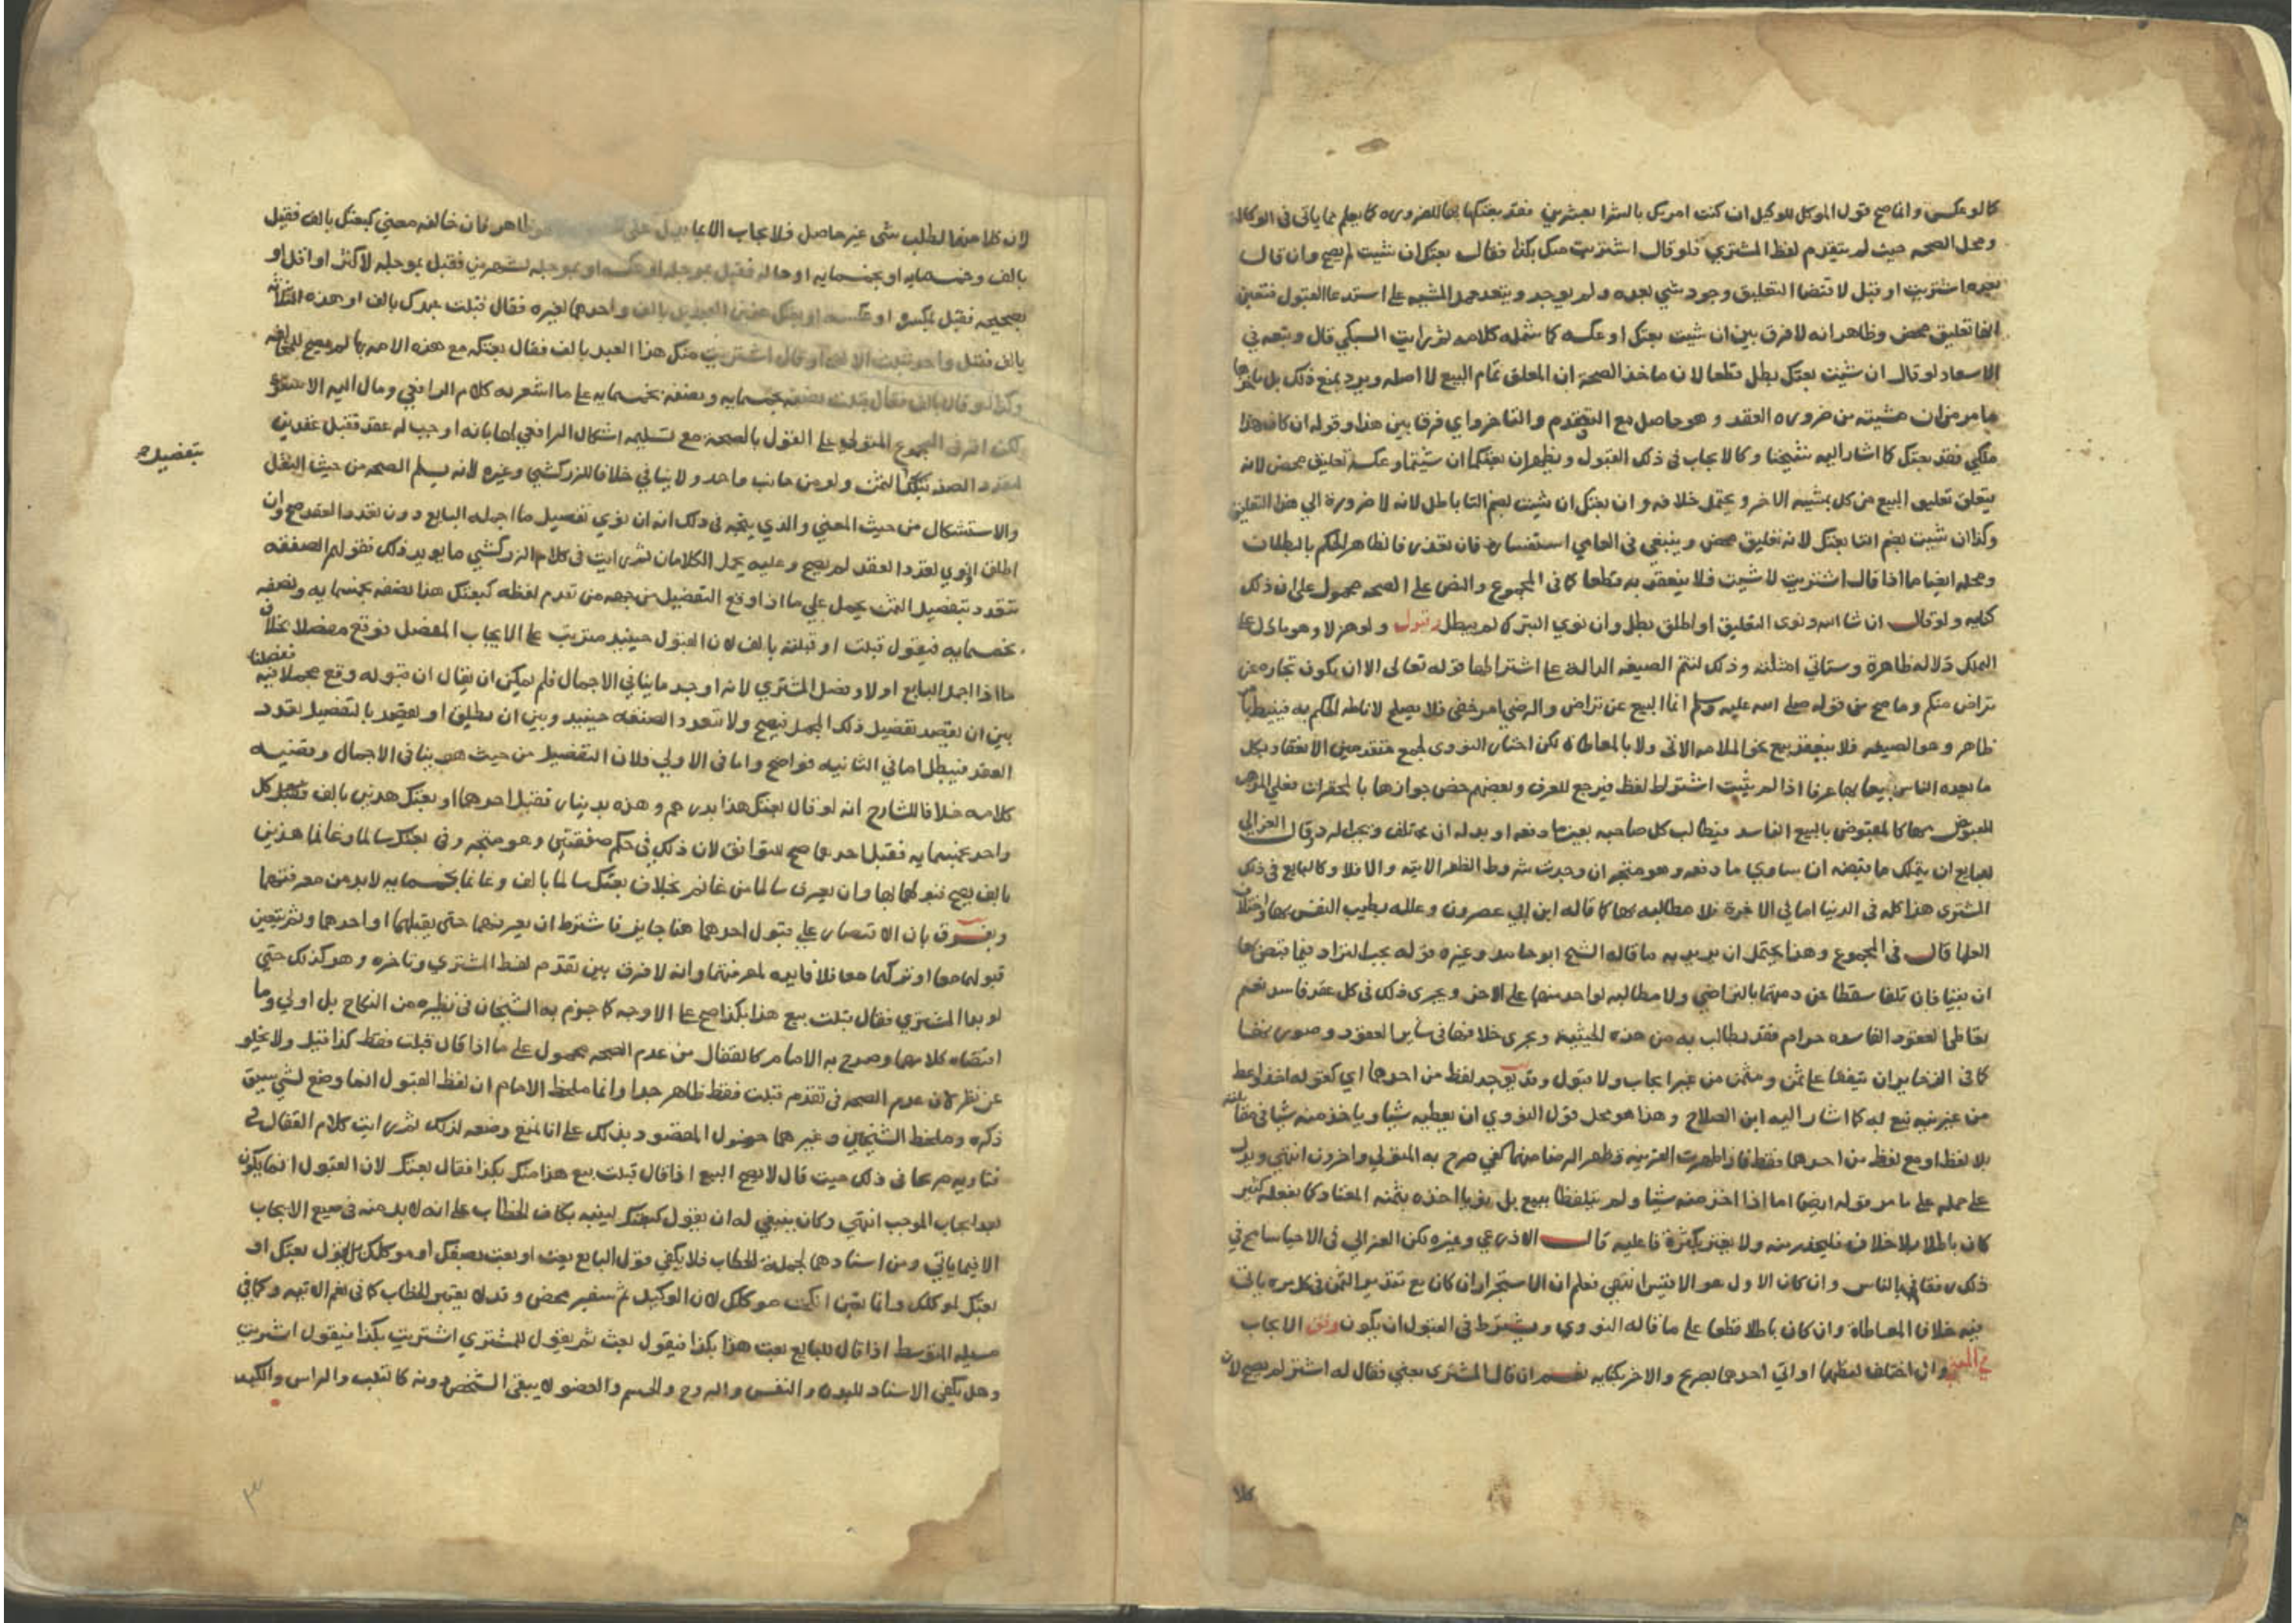 كما لو عكس وانما صح قول الموكل للوكيل ان كنت امرتك بالشرا بعشرين فقد بعتكها بها للضرورة كما يعلم مما ياتى فى الوكالة
ومحل الصحه حيث لم يتقدم لفظ المشتري فلو قال اشتريت منك بكذا فقال بعتك ان شيت لم يصح وان قال
بعده اشتريت او قبل لاقتضا التعليق وجود شي بعده ولم يوجد ويبعد حمل المشيه على استدعا القبول فتعين
انها تعليق محض وظاهر انه لا فرق بين ان شيت بعتك او عكسه كما شمله كلامه ثم رايت السبكي قال وتبعه في
الاسعاد لو قال ان شيت بعتك بطل قطعا لان ماخذ الصحة ان المعلق تمام البيع لا اصله ويرد بمنع ذلك بل ماخذها
ما مر من ان مشيته من ضرورة العقد وهو حاصل مع التقدم والتاخر واي فرق بين هذا وقوله ان كان هذا
ملكي فقد بعتك كما اشار اليه شيخنا وكالايجاب فى ذلك القبول ويظهر ان بعتكما ان شيتما وعكسه تعليق محض لانه
يتعلق تعليق البيع من كل بمشيه الاخر ويحتمل خلافه وان بعتك ان شيت بضم التا باطل لانه لا ضرورة الى هذا التعليق
وكذا ان شيت بضم التا بعتك لانه تعليق محض وينبغي فى العامي استفساره فان تعذر فالظاهر الحكم بالبطلان
ومحله ايضا ما اذا قال اشتريت لا شيت فلا ينعقد به قطعا كما فى المجموع والنص على الصحه محمول على ان ذلك
كنايه ولو قال ان شا الله ونوى التعليق او اطلق بطل وان نوي التبرك لم يبطل وقبول ولو هزلا وهو ما دل على
التملك دلاله ظاهرة وستاتي امثلته وذلك لتتم الصيغه الدالة على اشتراطها قوله تعالى الا ان يكون تجاره عن
تراض منكم وما صح من قوله صلى الله عليه وسلم انما البيع عن تراض والرضي امر خفى فلا يصلح لاناطه الحكم به فنيط
ظاهر وهو الصيغه فلا ينعقد بيع بنحو الملامسه الاتى ولا بالمعاطاه لكن اختار النووى لجمع منعقد من الانعقاد بكل
ما يعده الناس بيعا بها عرفا اذا لم يثبت اشتراط لفظ فيرجع للعرف وبعضهم خص جوازها بالمحقرات فعلي الاول
المقبوض بها كالمقبوض بالبيع الفاسد فيطالب كل صاحبه بعين ما دفعه او بدله ان تلف وقال الغزالي
للبايع ان يتملك ما قبضه ان ساوي ما دفعه وهو متجه ان وجدت شروط الظفر الاتيه والا فلا وكالبايع في ذلك
المشتري هذا كله فى الدنيا اما فى الاخرة فلا مطالبه بها كما قاله ابن ابي عصرون وعلله بطيب النفس بها واختلاف
العلما قال فى المجموع وهذا يحتمل ان يريد به ما قاله الشيخ ابو حامد وغيره قوله يجب التراد فيما قبض بها
ان بقيا فان تلفا سقطا عن ذمتهما بالتراضي ولا مطالبه لواحد منهما على الاخر ويجرى ذلك فى كل عقد فاسد نعم
تعاطى العقود الفاسده حرام فقد يطالب به من هذه الحيثيه ويجرى خلافها فى ساير العقود وصورتها
كما فى الذخاير ان يتفقا على ثمن ومثمن من غير ايجاب ولا قبول وقد يوجد لفظ من احدهما اي كقوله
من غير نيه بيع به كما اشار اليه ابن الصلاح وهذا هو محل قول النووي ان يعطيه شيا وياخذ منه شيا فى مقابلته
بلا لفظ او مع لفظ من احدهما فقط فاذا ظهرت القرينه وظهر الرضا منهما كفي صرح به المتولي واخرون انتهى ويدل
على حمله على ما مر قوله ايضا اما اذا اخذ منه شيا ولم يتلفظا ببيع بل نويا اخذه بثمنه المعتاد كما يفعله كثير
كان باطلا بلا خلاف فليحذر منه ولا يغتر بكثرة فاعليه قال الاذرعي وغيره لكن الغزالي فى الاحيا سامح في
ذلك رفقا بالناس وان كان الاول هو الاقيس انتهى فعلم ان الاستجرار ان كان مع تقدير الثمن فى كل مرة ياتى
فيه خلاف المعاطاة وان كان باطلا قطعا على ما قاله النووي ويشترط فى القبول ان يكون وفق الايجاب
في المعني وان اختلف لفظهما او اتي احدهما بصريح والاخر بكنايه نعم ان قال المشتري بعني فقال له اشتر لم يصح لان
كلا
لان كلا منهما لطلب شى غير حاصل فلا يجاب الا بما يدل على ظاهر فان خالفه معني كبعتك بالف فقبل
بالف وخمسمايه او بخمسمايه او حاله فقبل بموجله او عكسه او بموجله لشهرين فقبل بموجله لاكثر او اقل او
بصحيحه فقبل بمكسرة او عكسه او بعتك هذين العبدين بالف واحدهما لغيره فقال قبلت عبدك بالف او بهذه الثلاثه
بالف فقبل واحد او قال اشتريت منك هذا العبد بالف فقال بعتكه مع هذه الامه بها لم يصح للمخالفه
وكذا لو قال بالف فقال قبلت نصفه بخمسمايه ونصفه بخمسمايه على ما اشعر به كلام الرافعي ومال اليه الاسنوي
لكن اقر فى المجموع المتولي على القول بالصحة مع تسليمه اشكال الرافعي اجابا بانه اوجب له عقد فقبل عقدين
لتعدد الصفقه بتفصيل الثمن ولو من جانب واحد ولا ينافي خلافا للزركشي وغيره لانه يسلم الصحه من حيث النقل
بتفصيل صح
والاستشكال من حيث المعني والذي يتجه فى ذلك انه ان نوي تفصيل ما اجمله البايع دون تعدد العقد صح وان
اطلق او نوي تعدد العقد لم يصح وعليه يحمل الكلامان ثم رايت فى كلام الزركشي ما يويد ذلك فقولهم الصفقه
تتعدد بتفصيل الثمن يحمل على ما اذا وقع التفصيل من جهه من تقدم لفظه كبعتك هذا نصفه بخمسمايه ونصفه
بخمسمايه فيقول قبلت او قبلته بالف لان القبول حينيذ مترتب على الايجاب المفصل فوقع مفصلا بخلاف
ما اذا اجمل البايع اولا وفصل المشتري لانه اوجد ما ينافي الاجمال فلم يمكن ان يقال ان قبوله وقع مجملا ففصلنا فيه
بين ان يقصد تفصيل ذلك المجمل فيصح ولا تتعدد الصفقه حينيذ وبين ان يطلق او يقصد بالتفصيل تعدد
العقد فيبطل اما في الثانيه فواضح واما فى الاولى فلان التفصيل من حيث هو ينافى الاجمال وقضيه
كلامه خلافا للشارح انه لو قال بعتك هذا بدرهم وهذه بدينار فقبل احدهما او بعتك هذين بالف فقبل كل
واحد بخمسمايه فقبل احدهما صح للتوافق لان ذلك في حكم صفقتين وهو متجه وفى بعتك سالما وغانما هذين
بالف يصح قبولهما بها وان يعرف سالما من غانم بخلاف بعتك سالما بالف وغانما بخمسمايه لا بد من معرفتهما
ويفرق بان الاقتصار على قبول احدهما هنا جايز فاشترط ان يعرفهما حتى يقبلهما او احدهما وثم يتعين
قبولهما معا او تركهما معا فلا فايده لمعرفتهما وانه لا فرق بين تقدم لفظ المشتري وتاخره وهو كذلك حتى
لو بدا المشتري فقال قبلت بيع هذا بكذا صح على الاوجه كما جزم به الشيخان فى نظيره من النكاح بل اولي وما
اقتضاه كلامهما وصرح به الامام كالقفال من عدم الصحه محمول على ما اذا قال قبلت فقط كذا قيل ولا يخلو
عن نظر لان عدم الصحه فى تقدم قبلت فقط ظاهر جدا وانما ملحظ الامام ان لفظ القبول انما وضع لشي سبق
ذكره وملحظ الشيخين وغيرهما حصول المقصود بذلك على انا نمنع وضعه لذلك ثم رايت كلام القفال في
فتاويه صريحا فى ذلك حيث قال لا يصح البيع اذا قال قبلت بيع هذا منك بكذا فقال بعتك لان القبول انما يكون
بعد ايجاب الموجب انتهى وكان ينبغي له ان يقول كبعتك ليفيد بكاف الخطاب على انه لا بد منه فى صيغ الايجاب
الا فيما ياتي ومن اسنادها لجملة الخطاب فلا يكفي قول البايع بعت او بعت نصفك او موكلك بل يقول بعتك او
بعتك لموكلك وانما تعين انكحت موكلك لان الوكيل ثم سفير محض وقد لا يعتبر الخطاب كما فى نعم الاتيه وكما في
مسيله المتوسط اذا قال للبايع بعت هذا بكذا فيقول بعت ثم يقول للمشتري اشتريت بكذا فيقول اشتريت
وهل يكفى الاسناد لليد والنفس والروح والجسم والعضو لا يبقى الشخص دونه كالقلب والراس والكبد